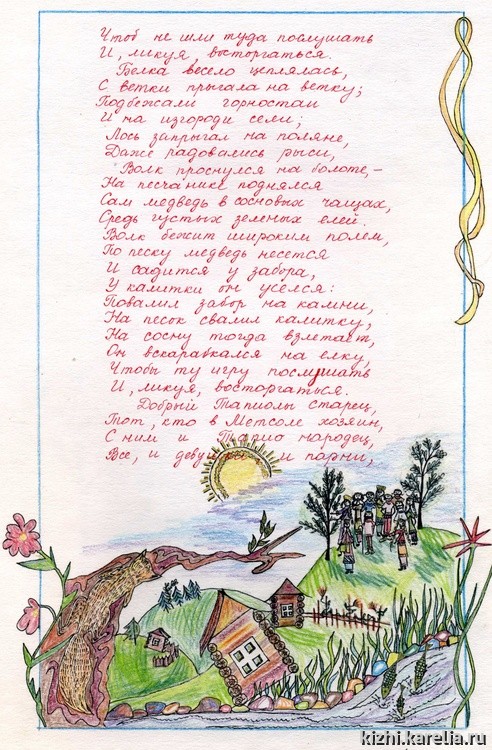 Чтоб не шли туда послушать
И, ликуя, восторгаться.
Белка весело цеплялась,
С ветки прыгала на ветку;
Подбежали горностаи
И на изгороди сели;
Лось запрыгал на поляне,
Даже радовались рыси,
Волк проснулся на болоте, –
На песчанике поднялся
Сам медведь в сосновых чащах,
Средь густых зеленых елей.
Волк бежит широким полем,
По песку медведь несется
И садится у забора,
У калитки он уселся:
Повалил забор на камни,
На песок свалил калитку,
На сосну тогда взлетает,
Он вскарабкался на елку,
Чтобы ту игру послушать
И, ликуя, восторгаться.
Добрый Тапиолы старец,
Тот, кто в Метсоле хозяин,
С ним и Тапио народец,
Все, и девушки и парни,
kizhi.karelia.ru